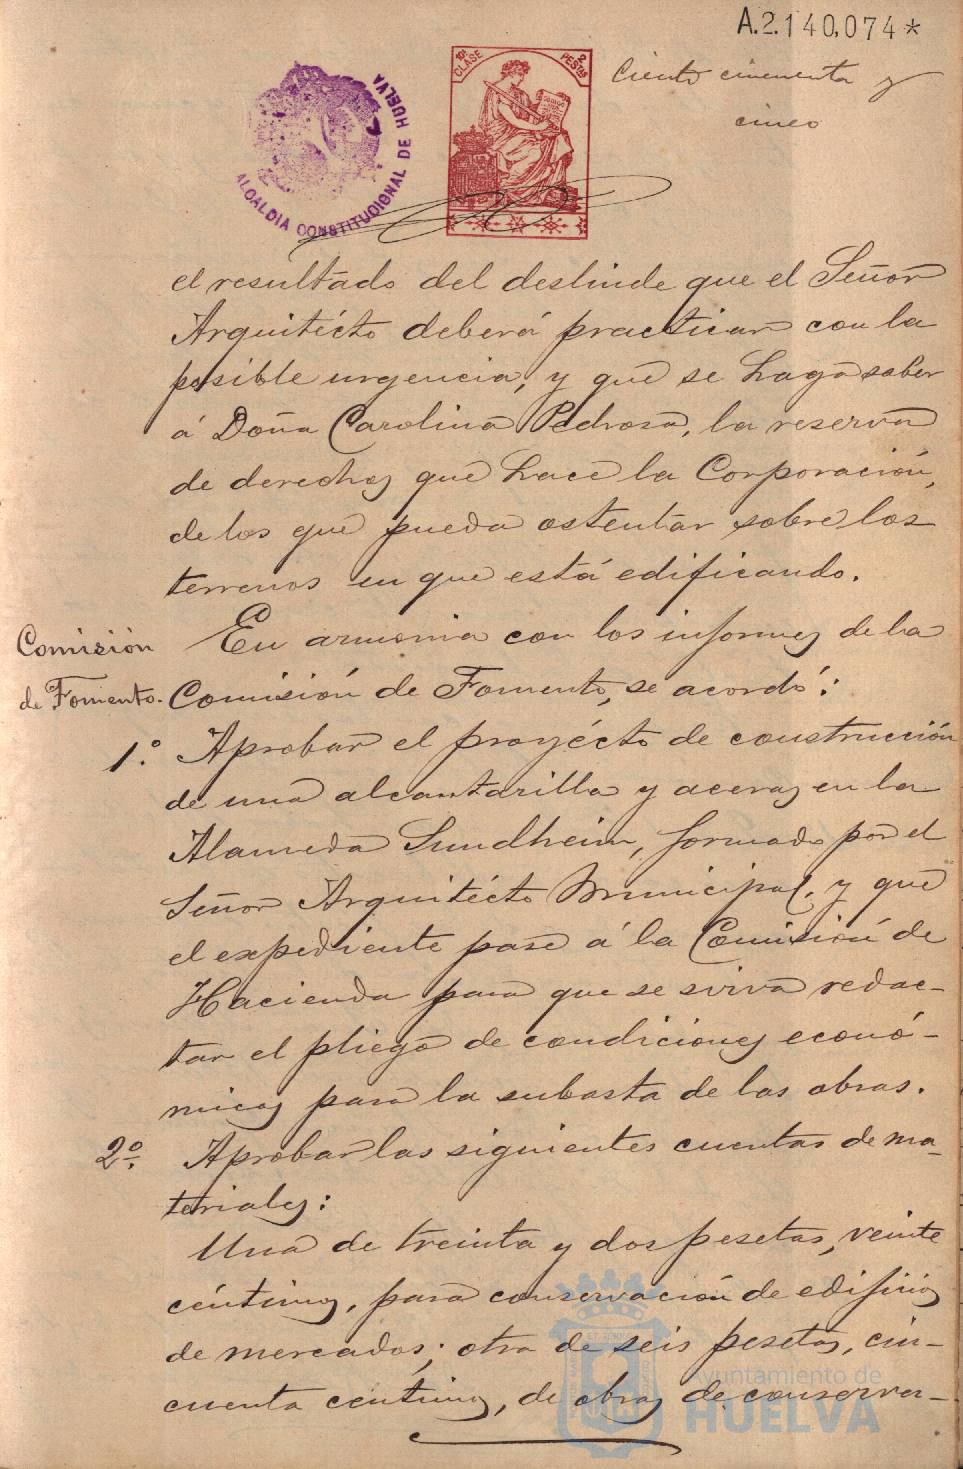 A.2.140,074*
10ª CLASE
2 PESTAS
ALCALDIA CONSTITUCIONAL DE HUELVA
Ciento cincuenta y
cinco
el resultado del deslinde que el Señor
Arquitécto deberá practicar con la
posible urgencia, y que se haga saber
á Doña Carolina Pedrosa, la reserva
de derechos que hace la Corporación,
de los que pueda ostentar sobre los
terrenos en que está edificando.
Comisión
de Fomento.
En armonia con los informes de la
Comisión de Fomento, se acordó:
1.º Aprobar el proyécto de construcción
de una alcantarilla y aceras en la
Alameda Sundheim, formado por el
Señor Arquitécto Municipal, y que
el expediente pase á la Comisión de
Hacienda para que se sirva redac-
tar el pliego de condiciones econó-
micas para la subasta de las obras.
2º. Aprobar las siguientes cuentas de ma-
teriales:
Una de treinta y dos pesetas, veinte
céntimos, para conservación de edificios
de mercados; otra de seis pesetas, cin-
cuenta centimos, de obras de conserva-
Ayuntamiento de
HUELVA